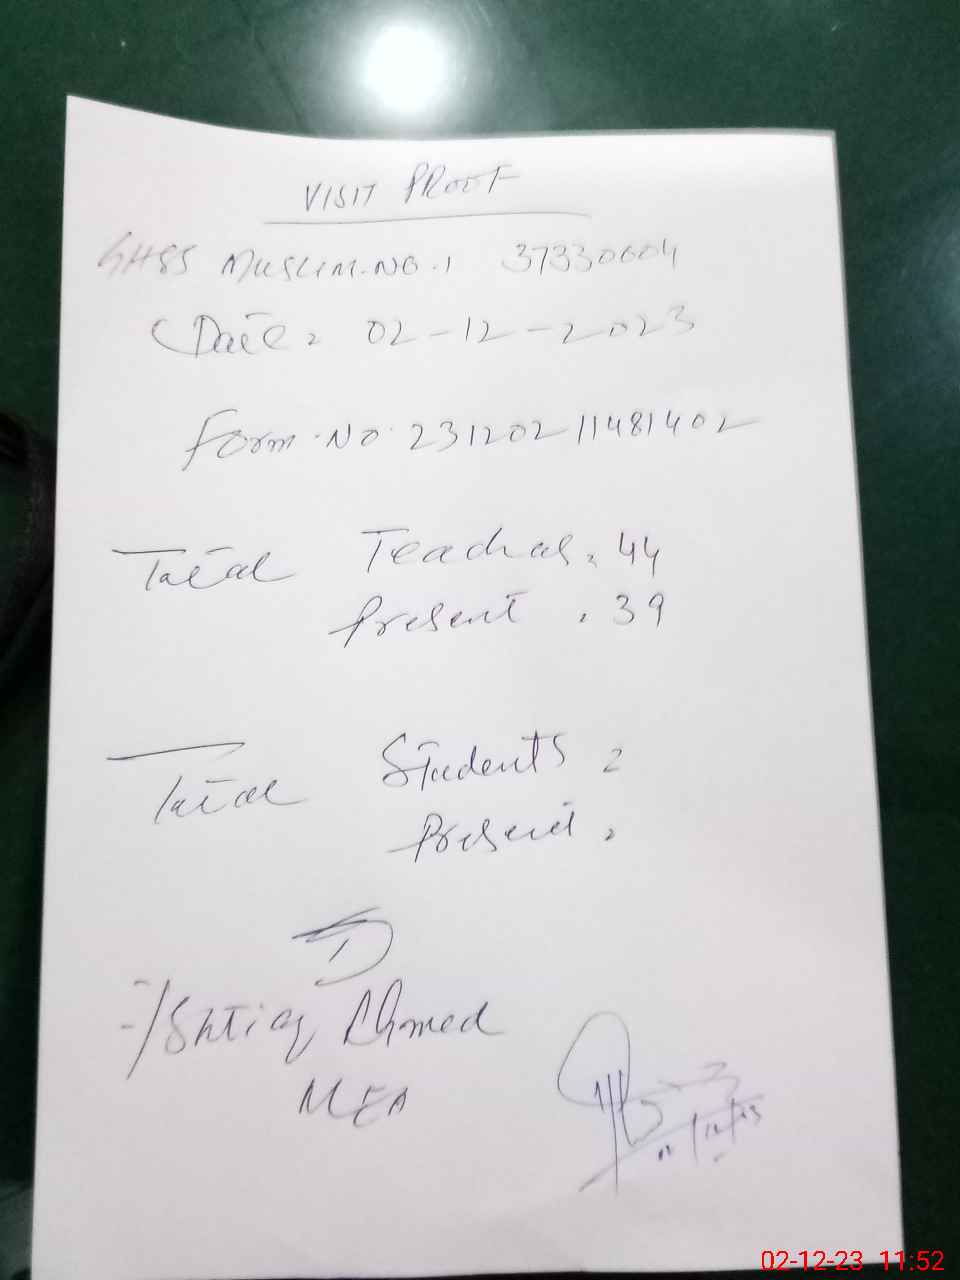 VISIT PROOF
GHSS MUSLIM.NO.1 37330004
Date: 02-12-2023
Form.No. 23120211481402
Total Teachers: 44
Present: 39
Total Students:
Present:
Ishtiaq Ahmed
MEA
02-12-23 11:52